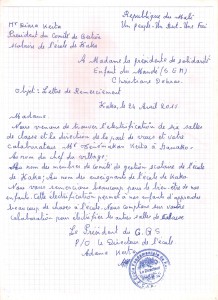 République du Mali
Mr Keita
Un peuple - Un But - Une Foi
Président du Comité de Gestion
Scolaire de l'école de Kaka
A Madame la présidente de solidarité
Enfant du Monde (S E M)
Christiane
Objet : Lettre de Remerciement
Kaka, le 24 Avril 2011
Madame
Nous venons de l'électrification de salles
de classe et la direction de la part de vous et votre
collaborateur Mr Keita à Bamako.
Au nom du chef de village;
Au nom des membres du comité de gestion scolaire de l'école
de Kaka; Au nom des enseignants de l'école de Kaka
Nous vous remercions beaucoup pour le bien être de nos
enfants. Cette électrification permet à nos enfants d'apprendre
beaucoup de choses à l'école. Nous comptons sur votre
collaboration pour électrifier les autres salles de classe.
Le Président du C.G.S
P/O Le Directeur de l'école
Adama Keita